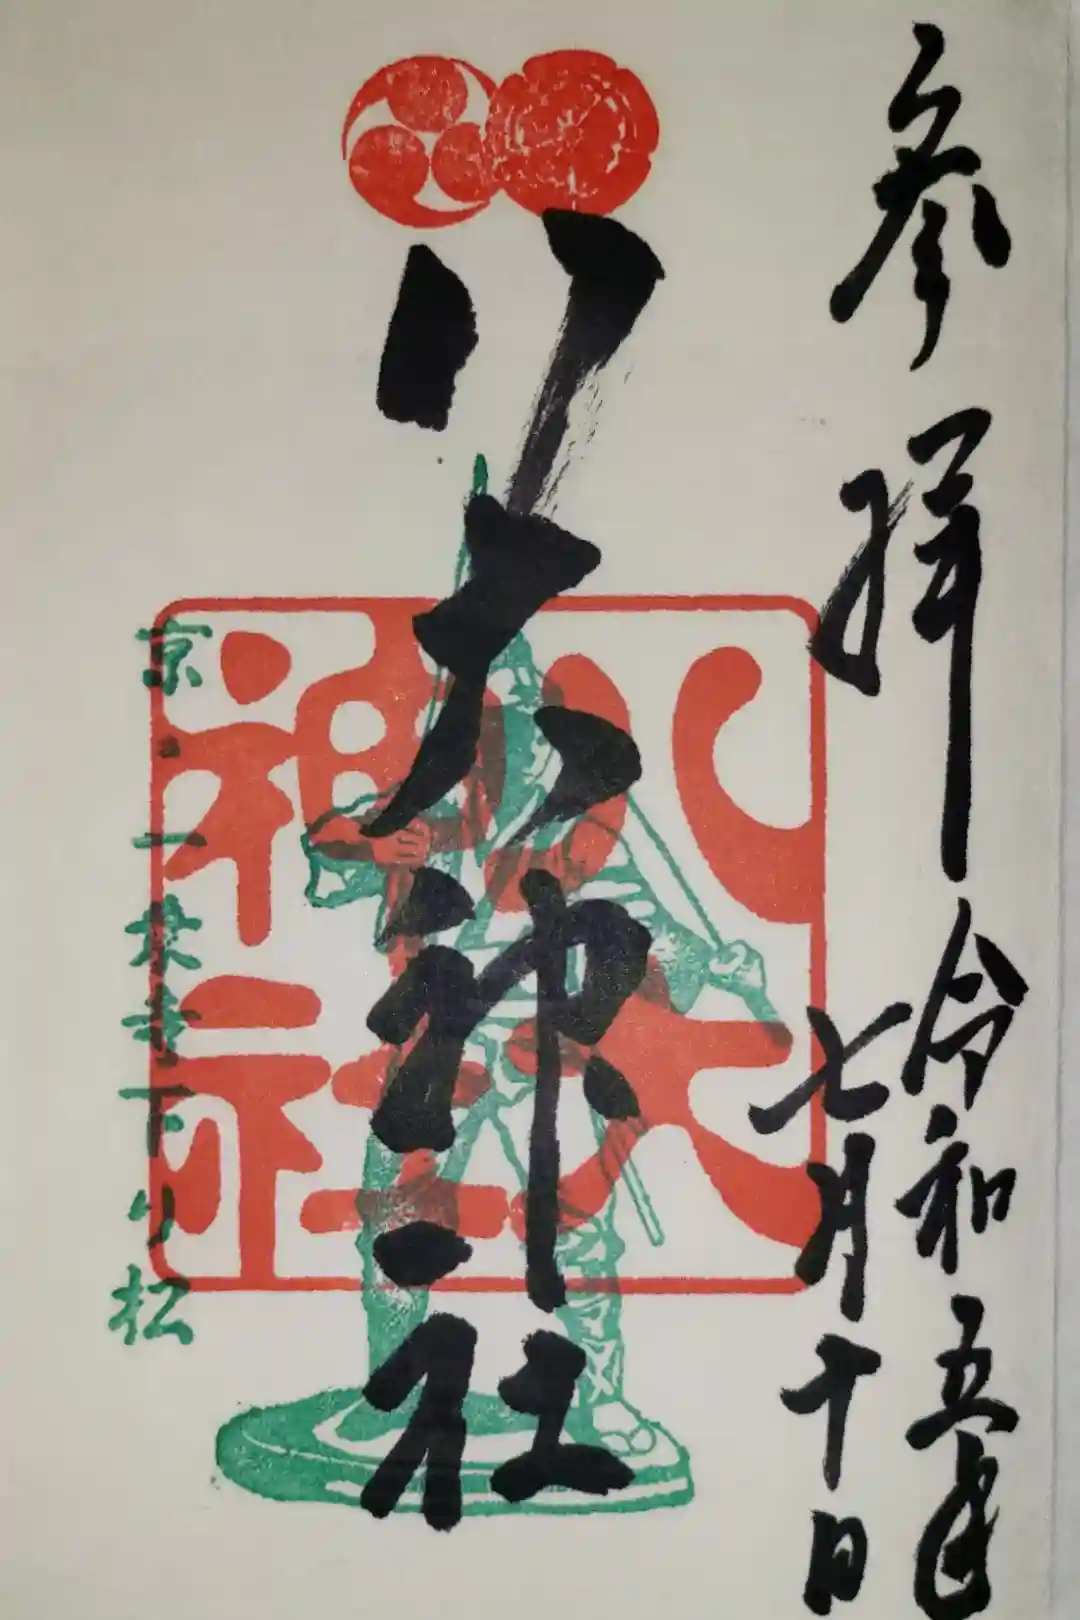 参拝 令和五年
七月十日
八大神社
八大神社
京・一乗寺下り松